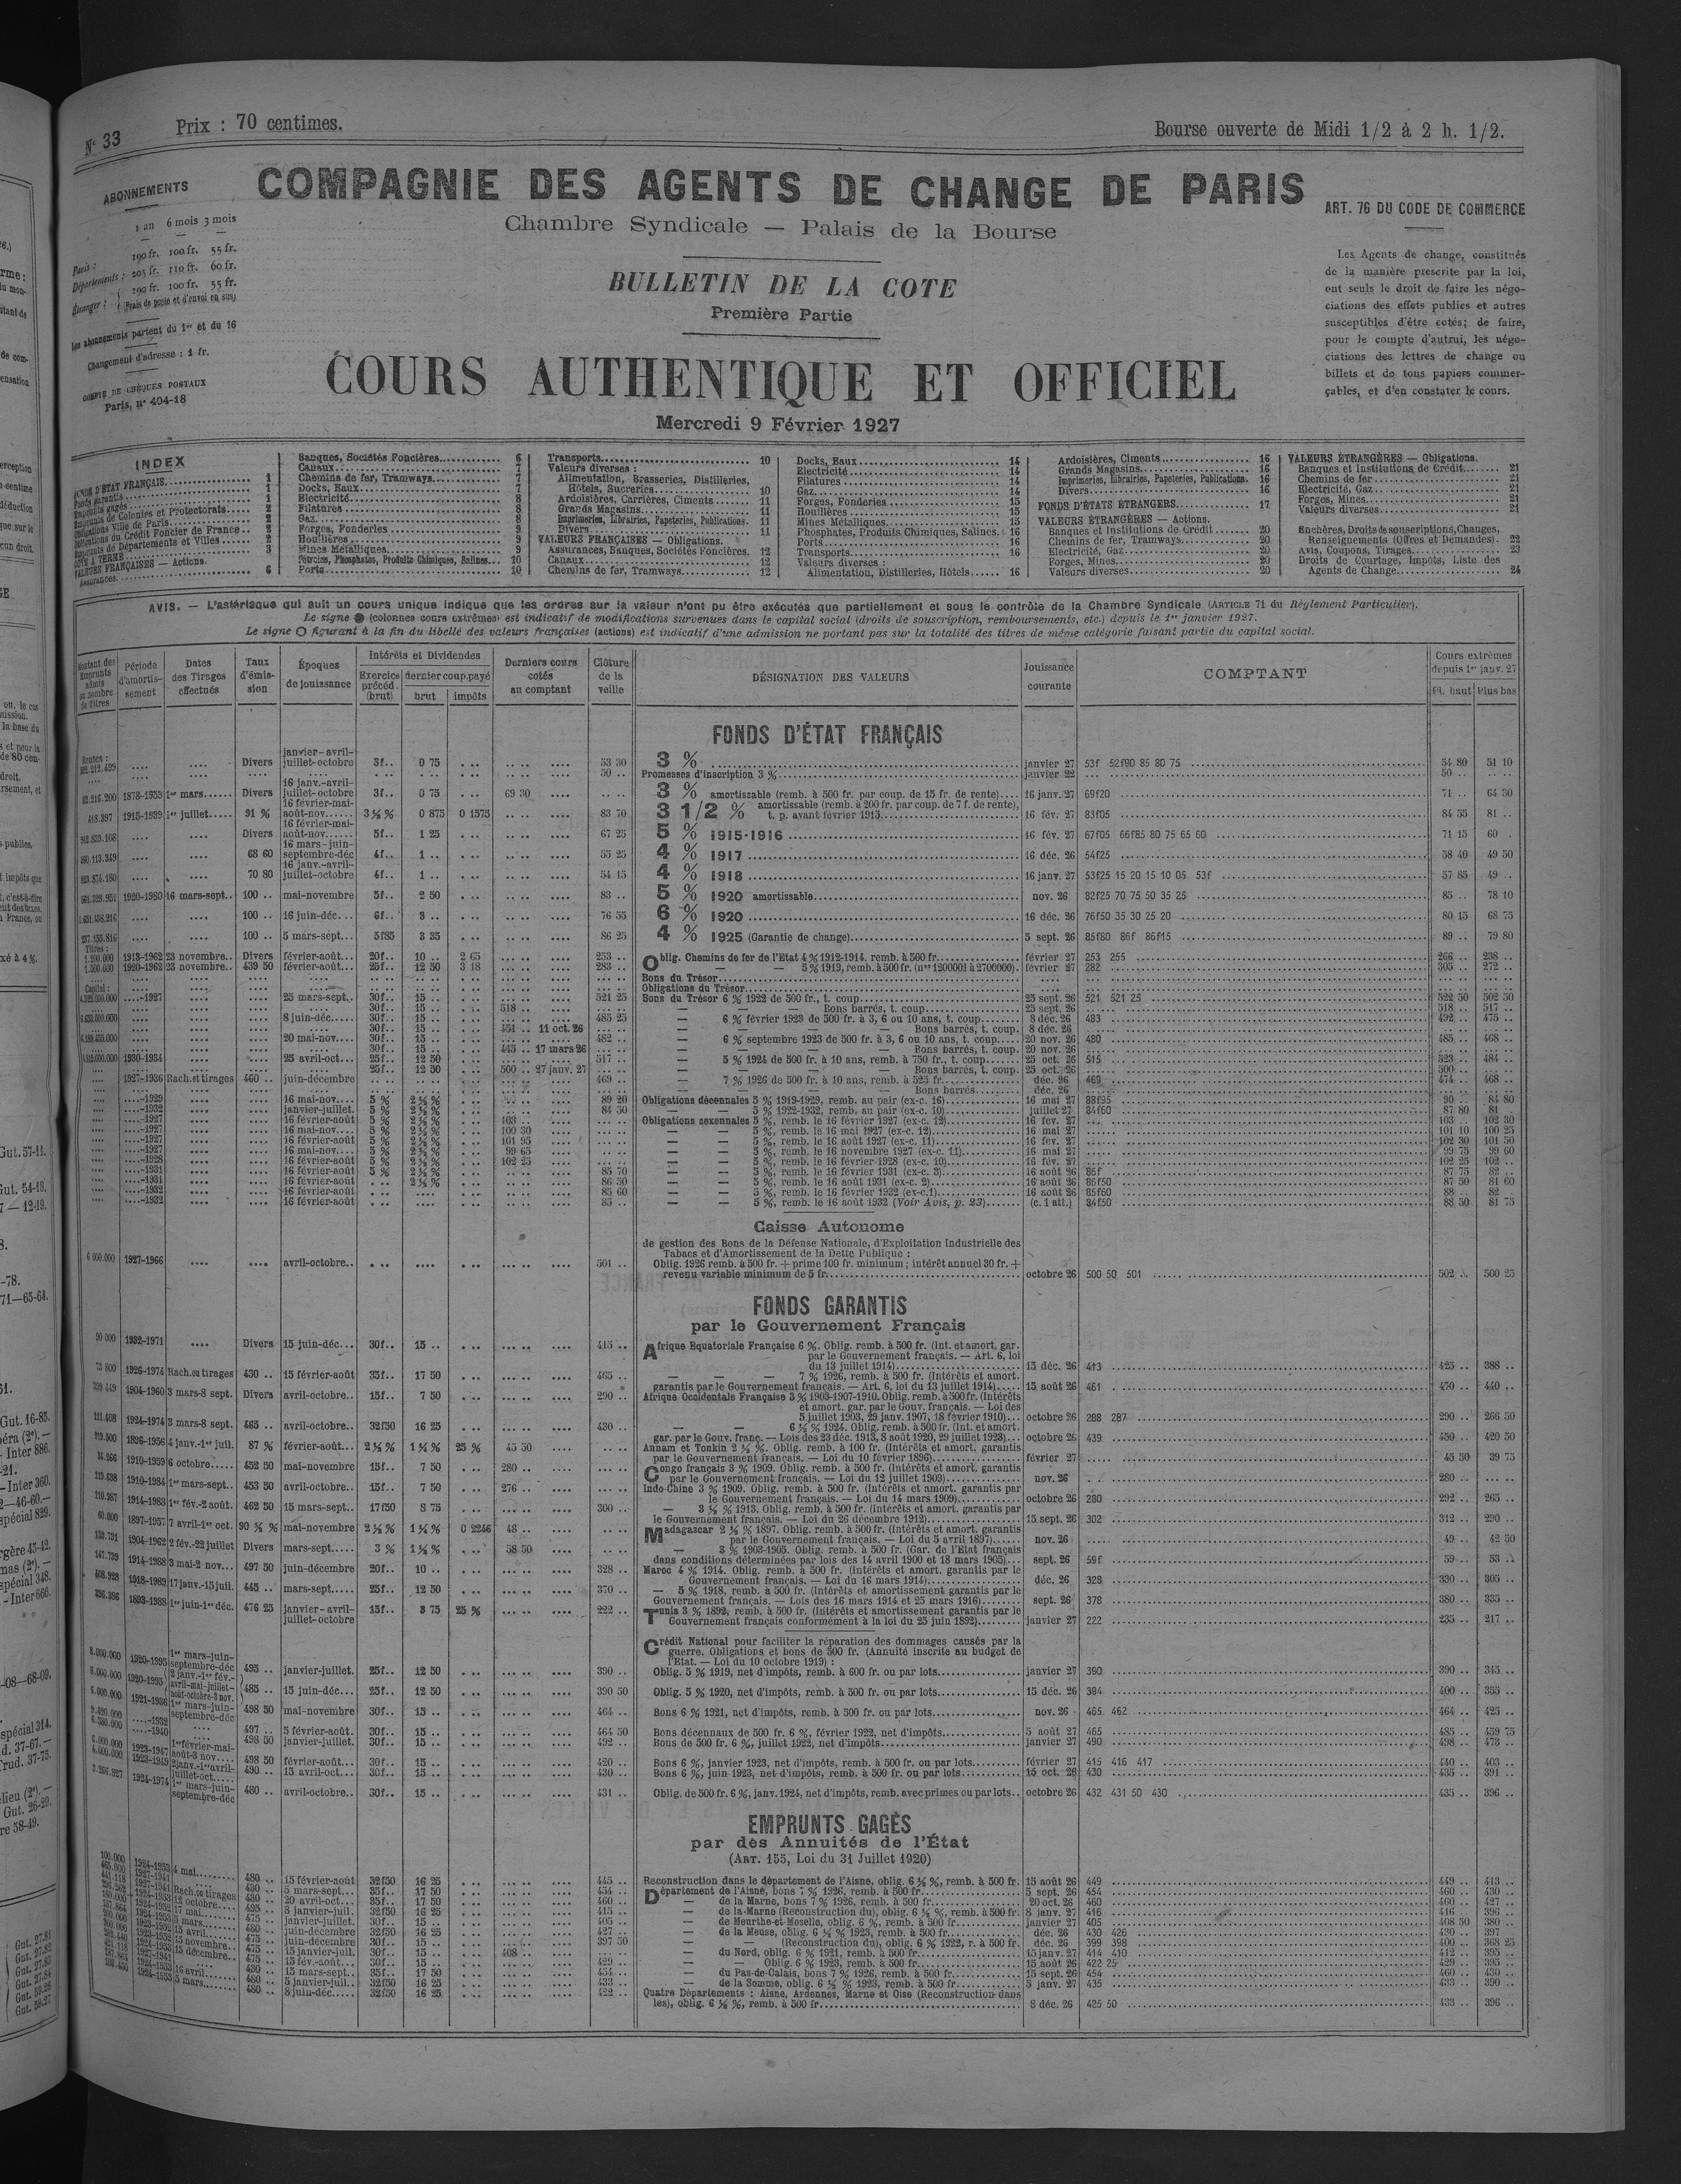 N° 33
Prix : 70 centimes.
Bourse ouverte de Midi 1/2 à 2 h. 1/2.
ABONNEMENTS
1 an 6 mois 3 mois
Paris : 190 fr. 100 fr. 55 fr.
Départements : 205 fr. 110 fr. 60 fr.
Étranger : 190 fr. 100 fr. 55 fr.
(Frais de poste et d'envoi en sus)
Les abonnements partent du 1er et du 16
Changement d'adresse : 1 fr.
COMPTE DE CHÈQUES POSTAUX
Paris, n° 404-18
COMPAGNIE DES AGENTS DE CHANGE DE PARIS
Chambre Syndicale — Palais de la Bourse
BULLETIN DE LA COTE
Première Partie
COURS AUTHENTIQUE ET OFFICIEL
Mercredi 9 Février 1927
ART. 76 DU CODE DE COMMERCE
Les Agents de change, constitués
de la manière prescrite par la loi,
ont seuls le droit de faire les négo-
ciations des effets publics et autres
susceptibles d'être cotés; de faire,
pour le compte d'autrui, les négo-
ciations des lettres de change ou
billets et de tous papiers commer-
çables, et d'en constater le cours.
INDEX
FONDS D'ÉTAT FRANÇAIS 1
Fonds garantis 1
Emprunts gagés 1
Emprunts de Colonies et Protectorats 2
Obligations Ville de Paris 2
Obligations du Crédit Foncier de France 2
Emprunts de Départements et Villes 2
COTE A TERME 3
VALEURS FRANÇAISES — Actions.
Assurances 6
Banques, Sociétés Foncières 6
Canaux 7
Chemins de fer, Tramways 7
Docks, Eaux 7
Electricité 8
Filatures 8
Gaz 8
Forges, Fonderies 9
Houillères 9
Mines Métalliques 9
Pétroles, Phosphates, Produits Chimiques, Salines 10
Ports 10
Transports 10
Valeurs diverses :
Alimentation, Brasseries, Distilleries,
Hôtels, Sucreries 10
Ardoisières, Carrières, Ciments 11
Grands Magasins 11
Imprimeries, Librairies, Papeteries, Publications. 11
Divers 11
VALEURS FRANÇAISES — Obligations.
Assurances, Banques, Sociétés Foncières. 12
Canaux 12
Chemins de fer, Tramways 12
Docks, Eaux 14
Electricité 14
Filatures 14
Gaz 14
Forges, Fonderies 15
Houillères 15
Mines Métalliques 15
Phosphates, Produits Chimiques, Salines. 16
Ports 16
Transports 16
Valeurs diverses :
Alimentation, Distilleries, Hôtels 16
Ardoisières, Ciments 16
Grands Magasins 16
Imprimeries, Librairies, Papeteries, Publications. 16
Divers 16
FONDS D'ÉTATS ÉTRANGERS 17
VALEURS ÉTRANGÈRES — Actions.
Banques et Institutions de Crédit 20
Chemins de fer, Tramways 20
Electricité, Gaz 20
Forges, Mines 20
Valeurs diverses 20
VALEURS ÉTRANGÈRES — Obligations.
Banques et Institutions de Crédit 21
Chemins de fer 21
Electricité, Gaz 21
Forges, Mines 21
Valeurs diverses 21
Enchères, Droits de souscriptions, Changes,
Renseignements (Offres et Demandes). 22
Avis, Coupons, Tirages 23
Droits de Courtage, Impôts, Liste des
Agents de Change 24
AVIS. — L'astérisque qui suit un cours unique indique que les ordres sur la valeur n'ont pu être exécutés que partiellement et sous le contrôle de la Chambre Syndicale (ARTICLE 71 du Règlement Particulier).
Le signe ● (colonnes cours extrêmes) est indicatif de modifications survenues dans le capital social (droits de souscription, remboursements, etc.) depuis le 1er janvier 1927.
Le signe O figurant à la fin du libellé des valeurs françaises (actions) est indicatif d'une admission ne portant pas sur la totalité des titres de même catégorie faisant partie du capital social.
Montant des Emprunts admis ou nombre de Titres
Période d'amortissement
Dates des Tirages effectués
Taux d'émission
Époques de jouissance
Intérêts et Dividendes
Exercice précéd. (brut)
dernier coup. payé
brut impôts
Derniers cours cotés au comptant
Clôture de la veille
DÉSIGNATION DES VALEURS
Jouissance courante
COMPTANT
Cours extrêmes depuis 1er janv. 27
Pl. haut Plus bas
FONDS D'ÉTAT FRANÇAIS
Divers janvier-avril-juillet-octobre 3f.. 0 75 53 30 3 % janvier 27 53f 52f90 85 80 75 54 80 51 10
50 .. Promesses d'inscription 3 % janvier 22 50 ..
1878-1953 1er mars Divers 16 janv.-avril-juillet-octobre 3f.. 0 75 69 30 3 % amortissable (remb. à 500 fr. par coup. de 15 fr. de rente) 16 janv. 27 69f20 71 .. 64 30
1915-1939 1er juillet 91 % 16 février-mai-août-nov. 3 ½ % 0 875 0 1575 83 70 3 1/2 % amortissable (remb. à 200 fr. par coup. de 7 f. de rente), t. p. avant février 1915 16 fév. 27 83f05 84 55 81 ..
Divers 16 février-mai-août-nov. 5f.. 1 25 67 25 5 % 1915-1916 16 fév. 27 67f05 66f85 80 75 65 60 71 15 60 ..
68 60 16 mars-juin-septembre-déc 4f.. 1 .. 55 25 4 % 1917 16 déc. 26 54f25 58 40 49 50
70 80 16 janv.-avril-juillet-octobre 4f.. 1 .. 54 15 4 % 1918 16 janv. 27 53f25 15 20 15 10 05 53f 57 85 49 ..
1920-1980 16 mars-sept. 100 .. mai-novembre 5f.. 2 50 83 .. 5 % 1920 amortissable nov. 26 82f25 70 75 50 35 25 85 .. 78 10
100 .. 16 juin-déc. 6f.. 3 .. 76 55 6 % 1920 16 déc. 26 76f50 35 30 25 20 80 15 68 75
100 .. 5 mars-sept. 5f85 3 35 86 25 4 % 1925 (Garantie de change) 5 sept. 26 85f80 86f 86f15 89 .. 79 80
1913-1962 23 novembre Divers février-août 20f.. 10 .. 2 65 253 .. Oblig. Chemins de fer de l'Etat 4 % 1912-1914, remb. à 500 fr. février 27 253 255 266 .. 238 ..
1920-1962 23 novembre 439 50 février-août 25f.. 12 50 3 18 283 .. — — 5 % 1919, remb. à 500 fr. (nos 1200001 à 2700000). février 27 282 305 .. 272 ..
Bons du Trésor
Obligations du Trésor
....-1927 25 mars-sept. 30f.. 15 .. 521 25 Bons du Trésor 6 % 1922 de 500 fr., t. coup. 25 sept. 26 521 521 25 522 50 502 50
30f.. 15 .. 518 .. — — Bons barrés, t. coup. 25 sept. 26 518 .. 517 ..
8 juin-déc. 30f.. 15 .. 485 25 — 6 % février 1923 de 500 fr. à 3, 6 ou 10 ans, t. coup. 8 déc. 26 483 492 .. 475 ..
30f.. 15 .. 451 .. 11 oct. 26 — — Bons barrés, t. coup. 8 déc. 26
20 mai-nov. 30f.. 15 .. 482 .. — 6 % septembre 1923 de 500 fr. à 3, 6 ou 10 ans, t. coup. 20 nov. 26 480 485 .. 468 ..
30f.. 15 .. 445 .. 17 mars 26 — — Bons barrés, t. coup. 20 nov. 26
1930-1934 25 avril-oct. 25f.. 12 50 517 .. — 5 % 1924 de 500 fr. à 10 ans, remb. à 750 fr., t. coup. 25 oct. 26 515 523 .. 484 ..
25f.. 12 50 500 .. 27 janv. 27 — — Bons barrés, t. coup. 25 oct. 26 500 ..
1927-1936 Rach. et tirages 460 .. juin-décembre 469 .. — 7 % 1926 de 500 fr. à 10 ans, remb. à 525 fr. déc. 26 469 474 .. 468 ..
— — Bons barrés déc. 26
....-1929 16 mai-nov. 5 % 2 ½ % 89 20 Obligations décennales 5 % 1919-1929, remb. au pair (ex-c. 16) 16 mai 27 88f95 90 .. 84 80
....-1932 janvier-juillet. 5 % 2 ½ % 84 50 — — 5 % 1922-1932, remb. au pair (ex-c. 10) juillet 27 84f60 87 80 81 ..
....-1927 16 février-août 5 % 2 ½ % 103 .. Obligations sexennales 5 %, remb. le 16 février 1927 (ex-c. 12) 16 fév. 27 103 .. 102 30
....-1927 16 mai-nov. 5 % 2 ½ % 100 30 — — 5 %, remb. le 16 mai 1927 (ex-c. 12) 16 mai 27 101 10 100 25
....-1927 16 février-août 5 % 2 ½ % 101 95 — — 5 %, remb. le 16 août 1927 (ex-c. 11) 16 fév. 27 102 30 101 50
....-1927 16 mai-nov. 5 % 2 ½ % 99 65 — — 5 %, remb. le 16 novembre 1927 (ex-c. 11) 16 mai 27 99 75 99 60
....-1928 16 février-août 5 % 2 ½ % 102 25 — — 5 %, remb. le 16 février 1928 (ex-c. 10) 16 fév. 27 102 25 102 ..
....-1931 16 février-août 5 % 2 ½ % 85 70 — — 5 %, remb. le 16 février 1931 (ex-c. 3) 16 août 26 86f 87 75 82 ..
....-1931 16 février-août 2 ½ % 86 50 — — 5 %, remb. le 16 août 1931 (ex-c. 2) 16 août 26 86f50 87 50 81 60
....-1932 16 février-août 85 60 — — 5 %, remb. le 16 février 1932 (ex-c. 1) 16 août 26 85f60 88 .. 82 ..
....-1932 16 février-août 85 .. — — 5 %, remb. le 16 août 1932 (Voir Avis, p. 23) (c. 1 att.) 84f50 88 50 81 75
Caisse Autonome
de gestion des Bons de la Défense Nationale, d'Exploitation Industrielle des
Tabacs et d'Amortissement de la Dette Publique :
6 000.000 1927-1966 avril-octobre 501 .. Oblig. 1926 remb. à 500 fr. + prime 100 fr. minimum; intérêt annuel 30 fr. +
revenu variable minimum de 5 fr. octobre 26 500 50 501 502 .. 500 25
FONDS GARANTIS
par le Gouvernement Français
1932-1971 Divers 15 juin-déc. 30f.. 15 .. 415 .. Afrique Equatoriale Française 6 %. Oblig. remb. à 500 fr. (Int. et amort. gar.
par le Gouvernement français. — Art. 6, loi
du 13 juillet 1914) 15 déc. 26 413 425 .. 388 ..
1926-1974 Rach. ou tirages 430 .. 15 février-août 35f.. 17 50 465 .. — — 7 % 1926, remb. à 500 fr. (Intérêts et amort.
garantis par le Gouvernement français. — Art. 6, loi du 13 juillet 1914) 15 août 26 461 470 .. 440 ..
1904-1960 3 mars-8 sept. Divers avril-octobre 15f.. 7 50 290 .. Afrique Occidentale Française 3 % 1903-1907-1910. Oblig. remb. à 500 fr. (Intérêts
et amort. gar. par le Gouv. français. — Loi des
5 juillet 1903, 29 janv. 1907, 18 février 1910) octobre 26 288 287 290 .. 266 50
1924-1974 3 mars-8 sept. 465 .. avril-octobre 32f50 16 25 430 .. — — 6 ½ % 1924. Oblig. remb. à 500 fr. (Int. et amort.
gar. par le Gouv. franç. — Lois des 23 déc. 1913, 8 août 1920, 29 juillet 1923) octobre 26 439 450 .. 420 50
1896-1956 4 janv.-1er juil. 87 % février-août 2 ½ % 1 ¼ % 25 % 45 50 Annam et Tonkin 2 ½ %. Oblig. remb. à 100 fr. (Intérêts et amort. garantis
par le Gouvernement français. — Loi du 10 février 1896) février 27 45 50 39 75
1910-1959 6 octobre 452 50 mai-novembre 15f.. 7 50 280 .. Congo français 3 % 1909. Oblig. remb. à 500 fr. (Intérêts et amort. garantis
par le Gouvernement français. — Loi du 12 juillet 1909) nov. 26 280 ..
1910-1984 1er mars-sept. 453 50 avril-octobre 15f.. 7 50 276 .. Indo-Chine 3 % 1909. Oblig. remb. à 500 fr. (Intérêts et amort. garantis par
le Gouvernement français. — Loi du 14 mars 1909) octobre 26 280 292 .. 265 ..
1914-1983 1er fév.-2 août. 462 50 15 mars-sept. 17f50 8 75 300 .. — 3 ½ % 1913. Oblig. remb. à 500 fr. (Intérêts et amort. garantis par
le Gouvernement français. — Loi du 26 décembre 1912) 15 sept. 26 302 312 .. 290 ..
60.000 1897-1957 7 avril-1er oct. 90 ½ % mai-novembre 2 ½ % 1 ¼ % 0 2246 48 .. Madagascar 2 ½ % 1897. Oblig. remb. à 500 fr. (Intérêts et amort. garantis
par le Gouvernement français. — Loi du 5 avril 1897) nov. 26 49 .. 42 50
1904-1962 2 fév.-22 juillet Divers mars-sept. 3 % 1 ½ % 58 50 — 3 % 1903-1905. Oblig. remb. à 500 fr. (Gar. de l'Etat français
dans conditions déterminées par lois des 14 avril 1900 et 18 mars 1905) sept. 26 59f 59 .. 53 ..
1914-1988 3 mai-2 nov. 497 50 juin-décembre 20f.. 10 .. 328 .. Maroc 4 % 1914. Oblig. remb. à 500 fr. (Intérêts et amort. garantis par le
Gouvernement français. — Loi du 16 mars 1914) déc. 26 328 330 .. 305 ..
1918-1989 17 janv.-15 juil. 445 .. mars-sept. 25f.. 12 50 370 .. — 5 % 1918, remb. à 500 fr. (Intérêts et amortissement garantis par le
Gouvernement français. — Lois des 16 mars 1914 et 25 mars 1916) sept. 26 378 380 .. 335 ..
1893-1988 1er juin-1er déc. 476 25 janvier-avril-juillet-octobre 15f.. 3 75 25 % 222 .. Tunis 3 % 1892, remb. à 500 fr. (Intérêts et amortissement garantis par le
Gouvernement français conformément à la loi du 25 juin 1892) janvier 27 222 235 .. 217 ..
Crédit National pour faciliter la réparation des dommages causés par la
guerre. Obligations et bons de 500 fr. (Annuité inscrite au budget de
l'Etat. — Loi du 10 octobre 1919) :
1920-1995 1er mars-juin-septembre-déc 495 .. janvier-juillet. 25f.. 12 50 390 .. Oblig. 5 % 1919, net d'impôts, remb. à 600 fr. ou par lots janvier 27 390 390 .. 345 ..
1920-1995 2 janv.-1er fév.-avril-mai-juillet-août-octobre-3 nov. 485 .. 15 juin-déc. 25f.. 12 50 390 50 Oblig. 5 % 1920, net d'impôts, remb. à 500 fr. ou par lots 15 déc. 26 394 400 .. 355 ..
1921-1936 1er mars-juin-septembre-déc 498 50 mai-novembre 30f.. 15 .. 464 .. Bons 6 % 1921, net d'impôts, remb. à 500 fr. ou par lots nov. 26 465 462 464 .. 425 ..
....-1932 497 .. 5 février-août. 30f.. 15 .. 464 50 Bons décennaux de 500 fr. 6 %, février 1922, net d'impôts 5 août 27 465 485 .. 459 75
....-1940 498 50 janvier-juillet. 30f.. 15 .. 492 .. Bons de 500 fr. 6 %, juillet 1922, net d'impôts janvier 27 490 498 .. 473 ..
1923-1947 1er février-mai-août-3 nov. 498 50 février-août 30f.. 15 .. 420 .. Bons 6 %, janvier 1923, net d'impôts, remb. à 500 fr. ou par lots février 27 415 416 417 440 .. 403 ..
1923-1949 2 janv.-1er avril-juillet-oct. 490 .. 15 avril-oct. 30f.. 15 .. 430 .. Bons 6 %, juin 1923, net d'impôts, remb. à 500 fr. ou par lots 15 oct. 26 430 435 .. 391 ..
1924-1974 1er mars-juin-septembre-déc 480 .. avril-octobre 30f.. 15 .. 431 .. Oblig. de 500 fr. 6 %, janv. 1924, net d'impôts, remb. avec primes ou par lots octobre 26 432 431 50 430 435 .. 396 ..
EMPRUNTS GAGÉS
par des Annuités de l'État
(ART. 155, Loi du 31 Juillet 1920)
480 .. 15 février-août 32f50 16 25 445 .. Reconstruction dans le département de l'Aisne, oblig. 6 ½ %, remb. à 500 fr. 15 août 26 449 449 .. 413 ..
5 mars-sept. 35f.. 17 50 454 .. Département de l'Aisne, bons 7 % 1926, remb. à 500 fr. 5 sept. 26 454 460 .. 430 ..
20 avril-oct. 35f.. 17 50 460 .. — de la Marne, bons 7 % 1926, remb. à 500 fr. 20 oct. 26 460 460 .. 427 ..
8 janvier-juil. 32f50 16 25 415 .. — de la Marne (Reconstruction du), oblig. 6 ½ %, remb. à 500 fr. 8 janv. 27 416 416 .. 396 ..
janvier-juillet. 30f.. 15 .. 405 .. — de Meurthe-et-Moselle, oblig. 6 %, remb. à 500 fr. janvier 27 405 408 50 380 ..
juin-décembre 32f50 16 25 427 .. — de la Meuse, oblig. 6 ½ % 1923, remb. à 500 fr. déc. 26 430 426 430 .. 397 ..
juin-décembre 30f.. 15 .. 397 50 — — (Reconstruction du), oblig. 6 % 1922, r. à 500 fr. déc. 26 399 398 400 .. 368 25
15 janvier-juil. 30f.. 15 .. 408 .. — du Nord, oblig. 6 % 1921, remb. à 500 fr. 15 janv. 27 414 410 412 .. 395 ..
15 fév.-août 30f.. 15 .. 429 .. — — Oblig. 6 % 1923, remb. à 500 fr. 15 août 26 422 25 429 .. 395 ..
15 mars-sept. 35f.. 17 50 454 .. — du Pas-de-Calais, bons 7 % 1926, remb. à 500 fr. 15 sept. 26 454 460 .. 430 ..
5 janvier-juil. 32f50 16 25 433 .. — de la Somme, oblig. 6 ½ % 1923, remb. à 500 fr. 5 janv. 27 435 433 .. 390 ..
480 .. 8 juin-déc. 32f50 16 25 422 .. Quatre Départements : Aisne, Ardennes, Marne et Oise (Reconstruction dans
les), oblig. 6 ½ %, remb. à 500 fr. 8 déc. 26 425 50 433 .. 396 ..